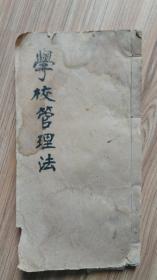 學校管理法